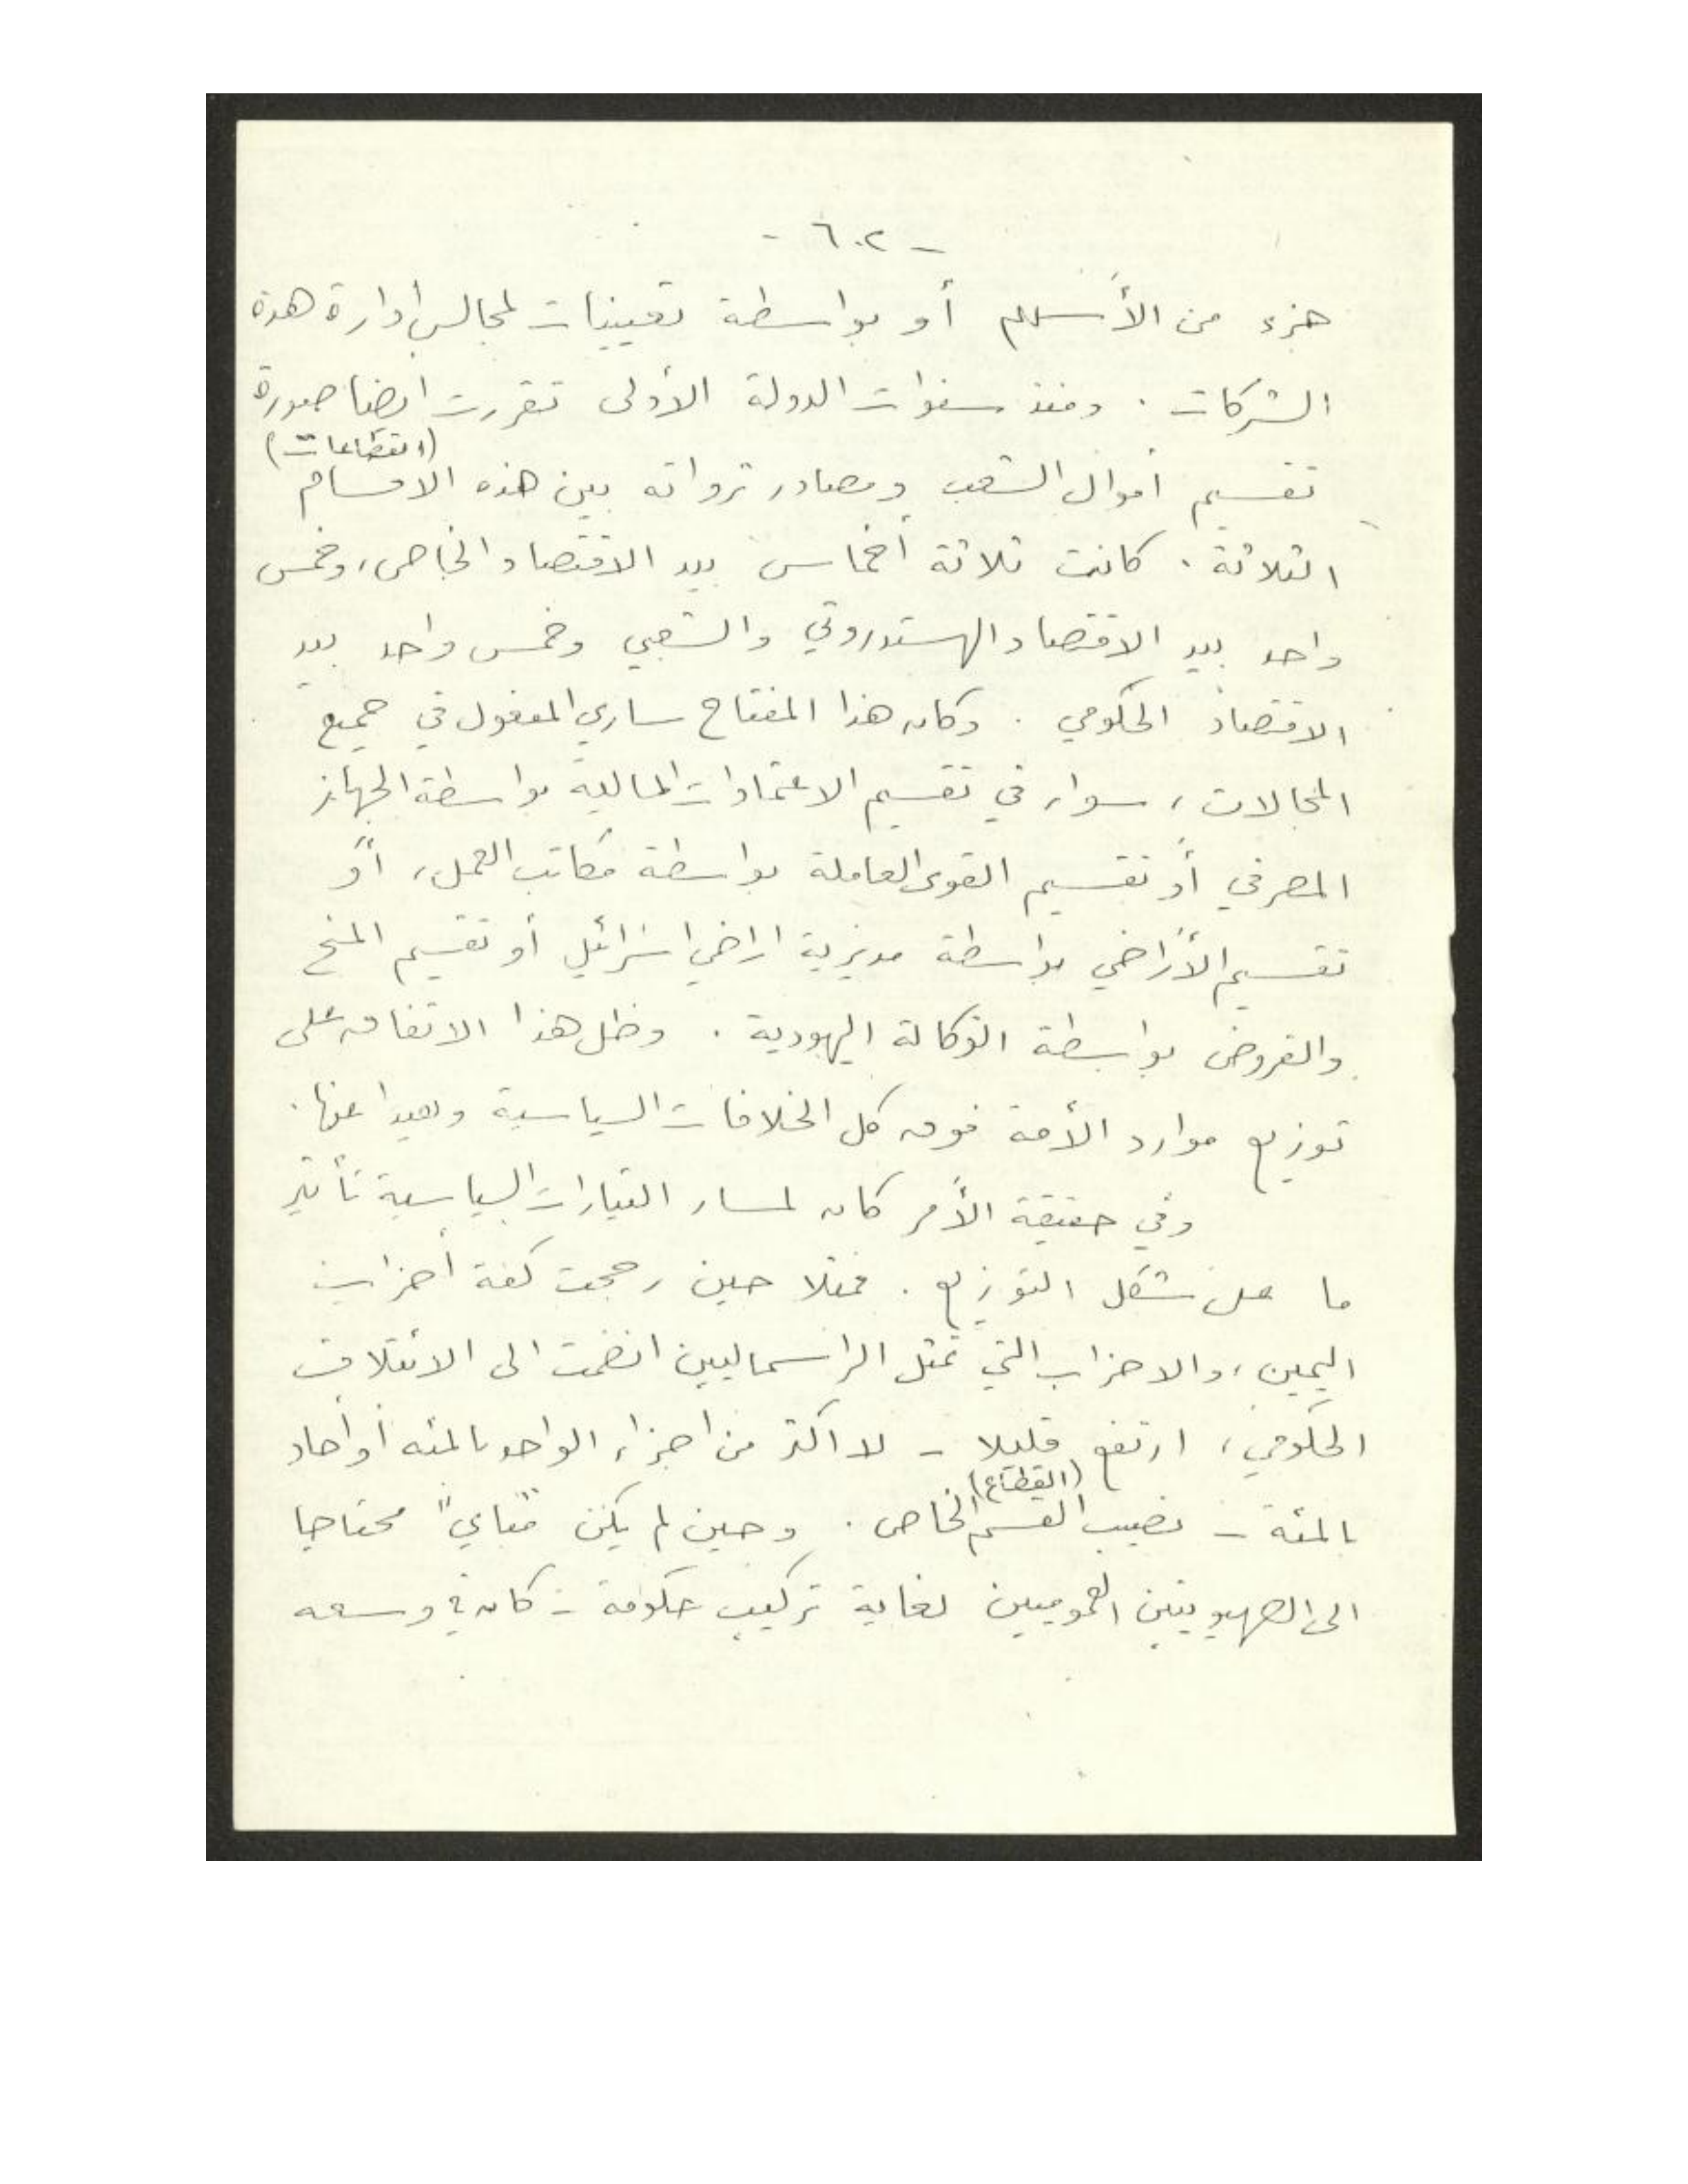 - ٦٠٢ -
جزء من الأسهم أو بواسطة تعيينات لمجالس أدارة هذه
الشركات . ومنذ سنوات الدولة الأولى تقررت ايضا صورة
(القطاعات)
تقسيم أموال الشعب ومصادر ثرواته بين هذه الاقسام
الثلاثة . كانت ثلاثة أخماس بيد الاقتصاد الخاص، وخمس
واحد بيد الاقتصاد الهستدروتي والشعبي وخمس واحد بيد
الاقتصاد الحكومي . وكان هذا المفتاح ساري المفعول في جميع
المجالات ، سواء في تقسيم الاعتمادات المالية بواسطة الجهاز
المصرفي أو تقسيم القوى العاملة بواسطة مكاتب العمل، أو
تقسيم الأراضي بواسطة مديرية اراضي اسرائيل أو تقسيم المنح
والقروض بواسطة الوكالة اليهودية . وظل هذا الاتفاق على
توزيع موارد الأمة فوق كل الخلافات السياسية وبعيدا عنها .
وفي حقيقة الأمر كان لمسار التيارات السياسية تأثير
ما على شكل التوزيع . فمثلا حين رجحت كفة أحزاب
اليمين ، والاحزاب التي تمثل الراسماليين انضمت الى الائتلاف
الحكومي ، ارتفع قليلا - لا اكثر من اجزاء الواحد بالمئه أو أحاد
(القطاع)
بالمئة - نصيب القسم الخاص . وحين لم يكن "مباي" محتاجا
الى الصهيونيين العموميين لغاية تركيب حكومة - كان في وسعه